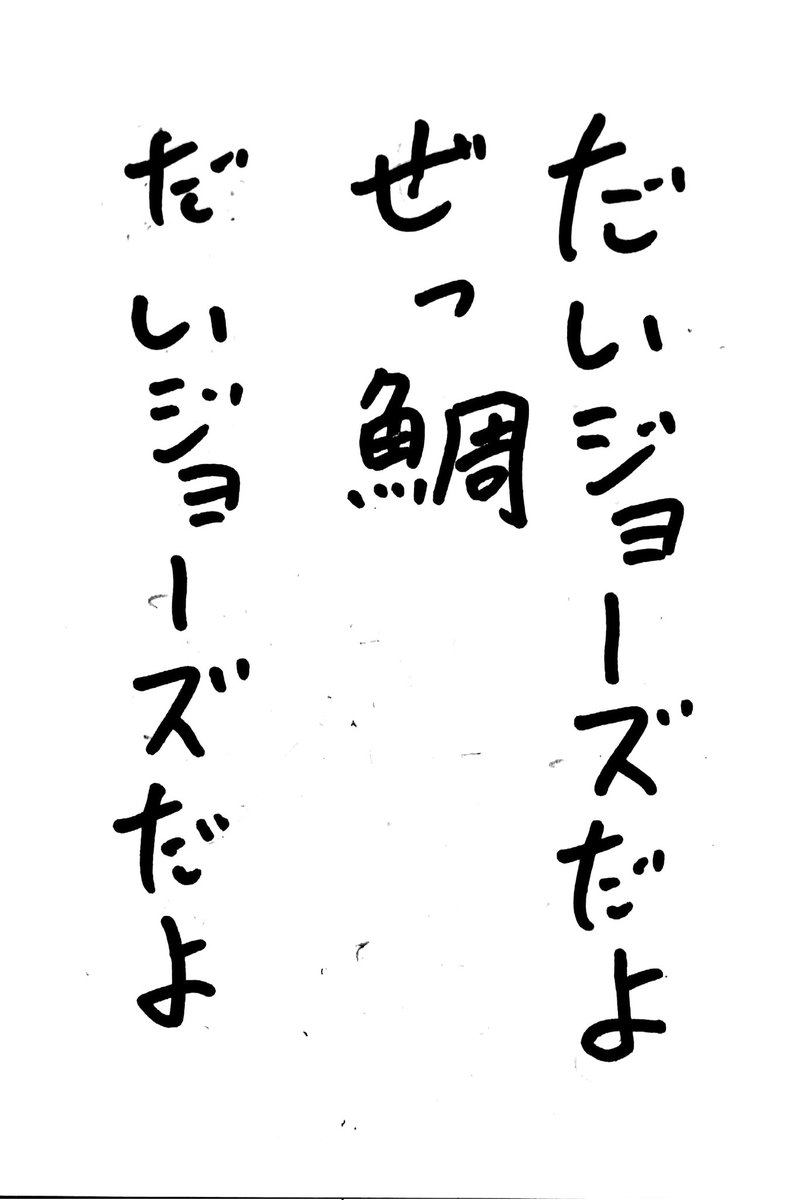 だいジョーズだよ
ぜっ鯛
だいジョーズだよ